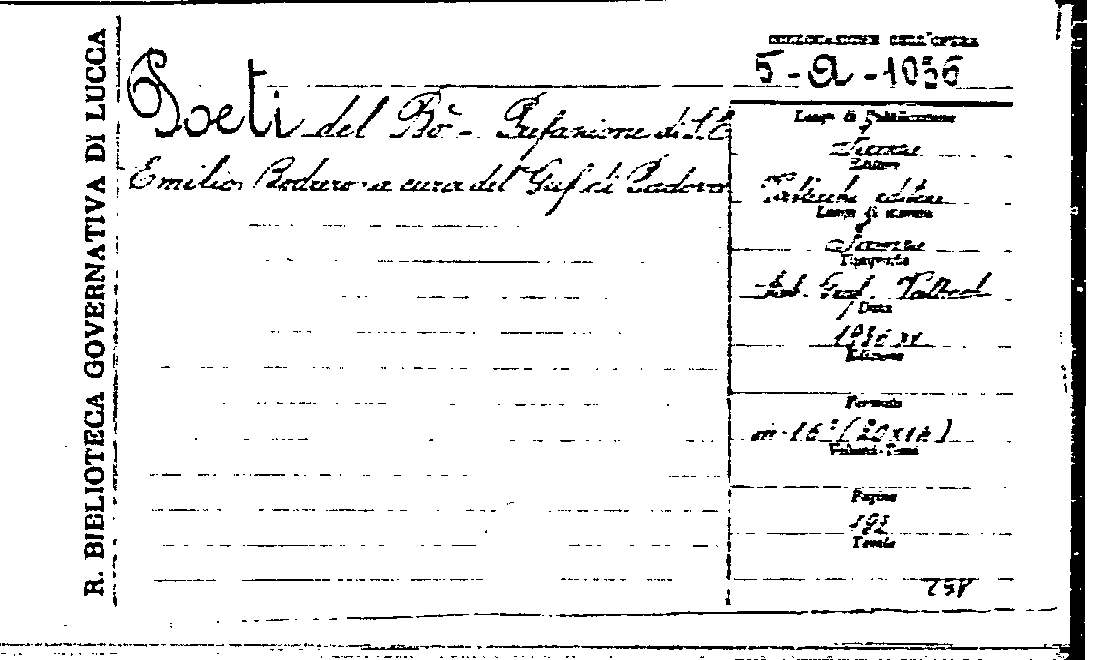 R. BIBLIOTECA GOVERNATIVA DI LUCCA
COLLOCAZIONE DELL'OPERA
5-A-1056
Poeti del Bò - Prefazione di S.E.
Emilio Bodrero a cura del Guf di Padova
Luogo di Pubblicazione
Firenze
Editore
Vallecchi editore
Luogo di stampa
Firenze
Tipografia
Stab. Graf. Vallecchi
Data
1936 XV
Edizione
Formato
in-16° (20x14)
Volumi-Tomi
Pagine
192
Tavole